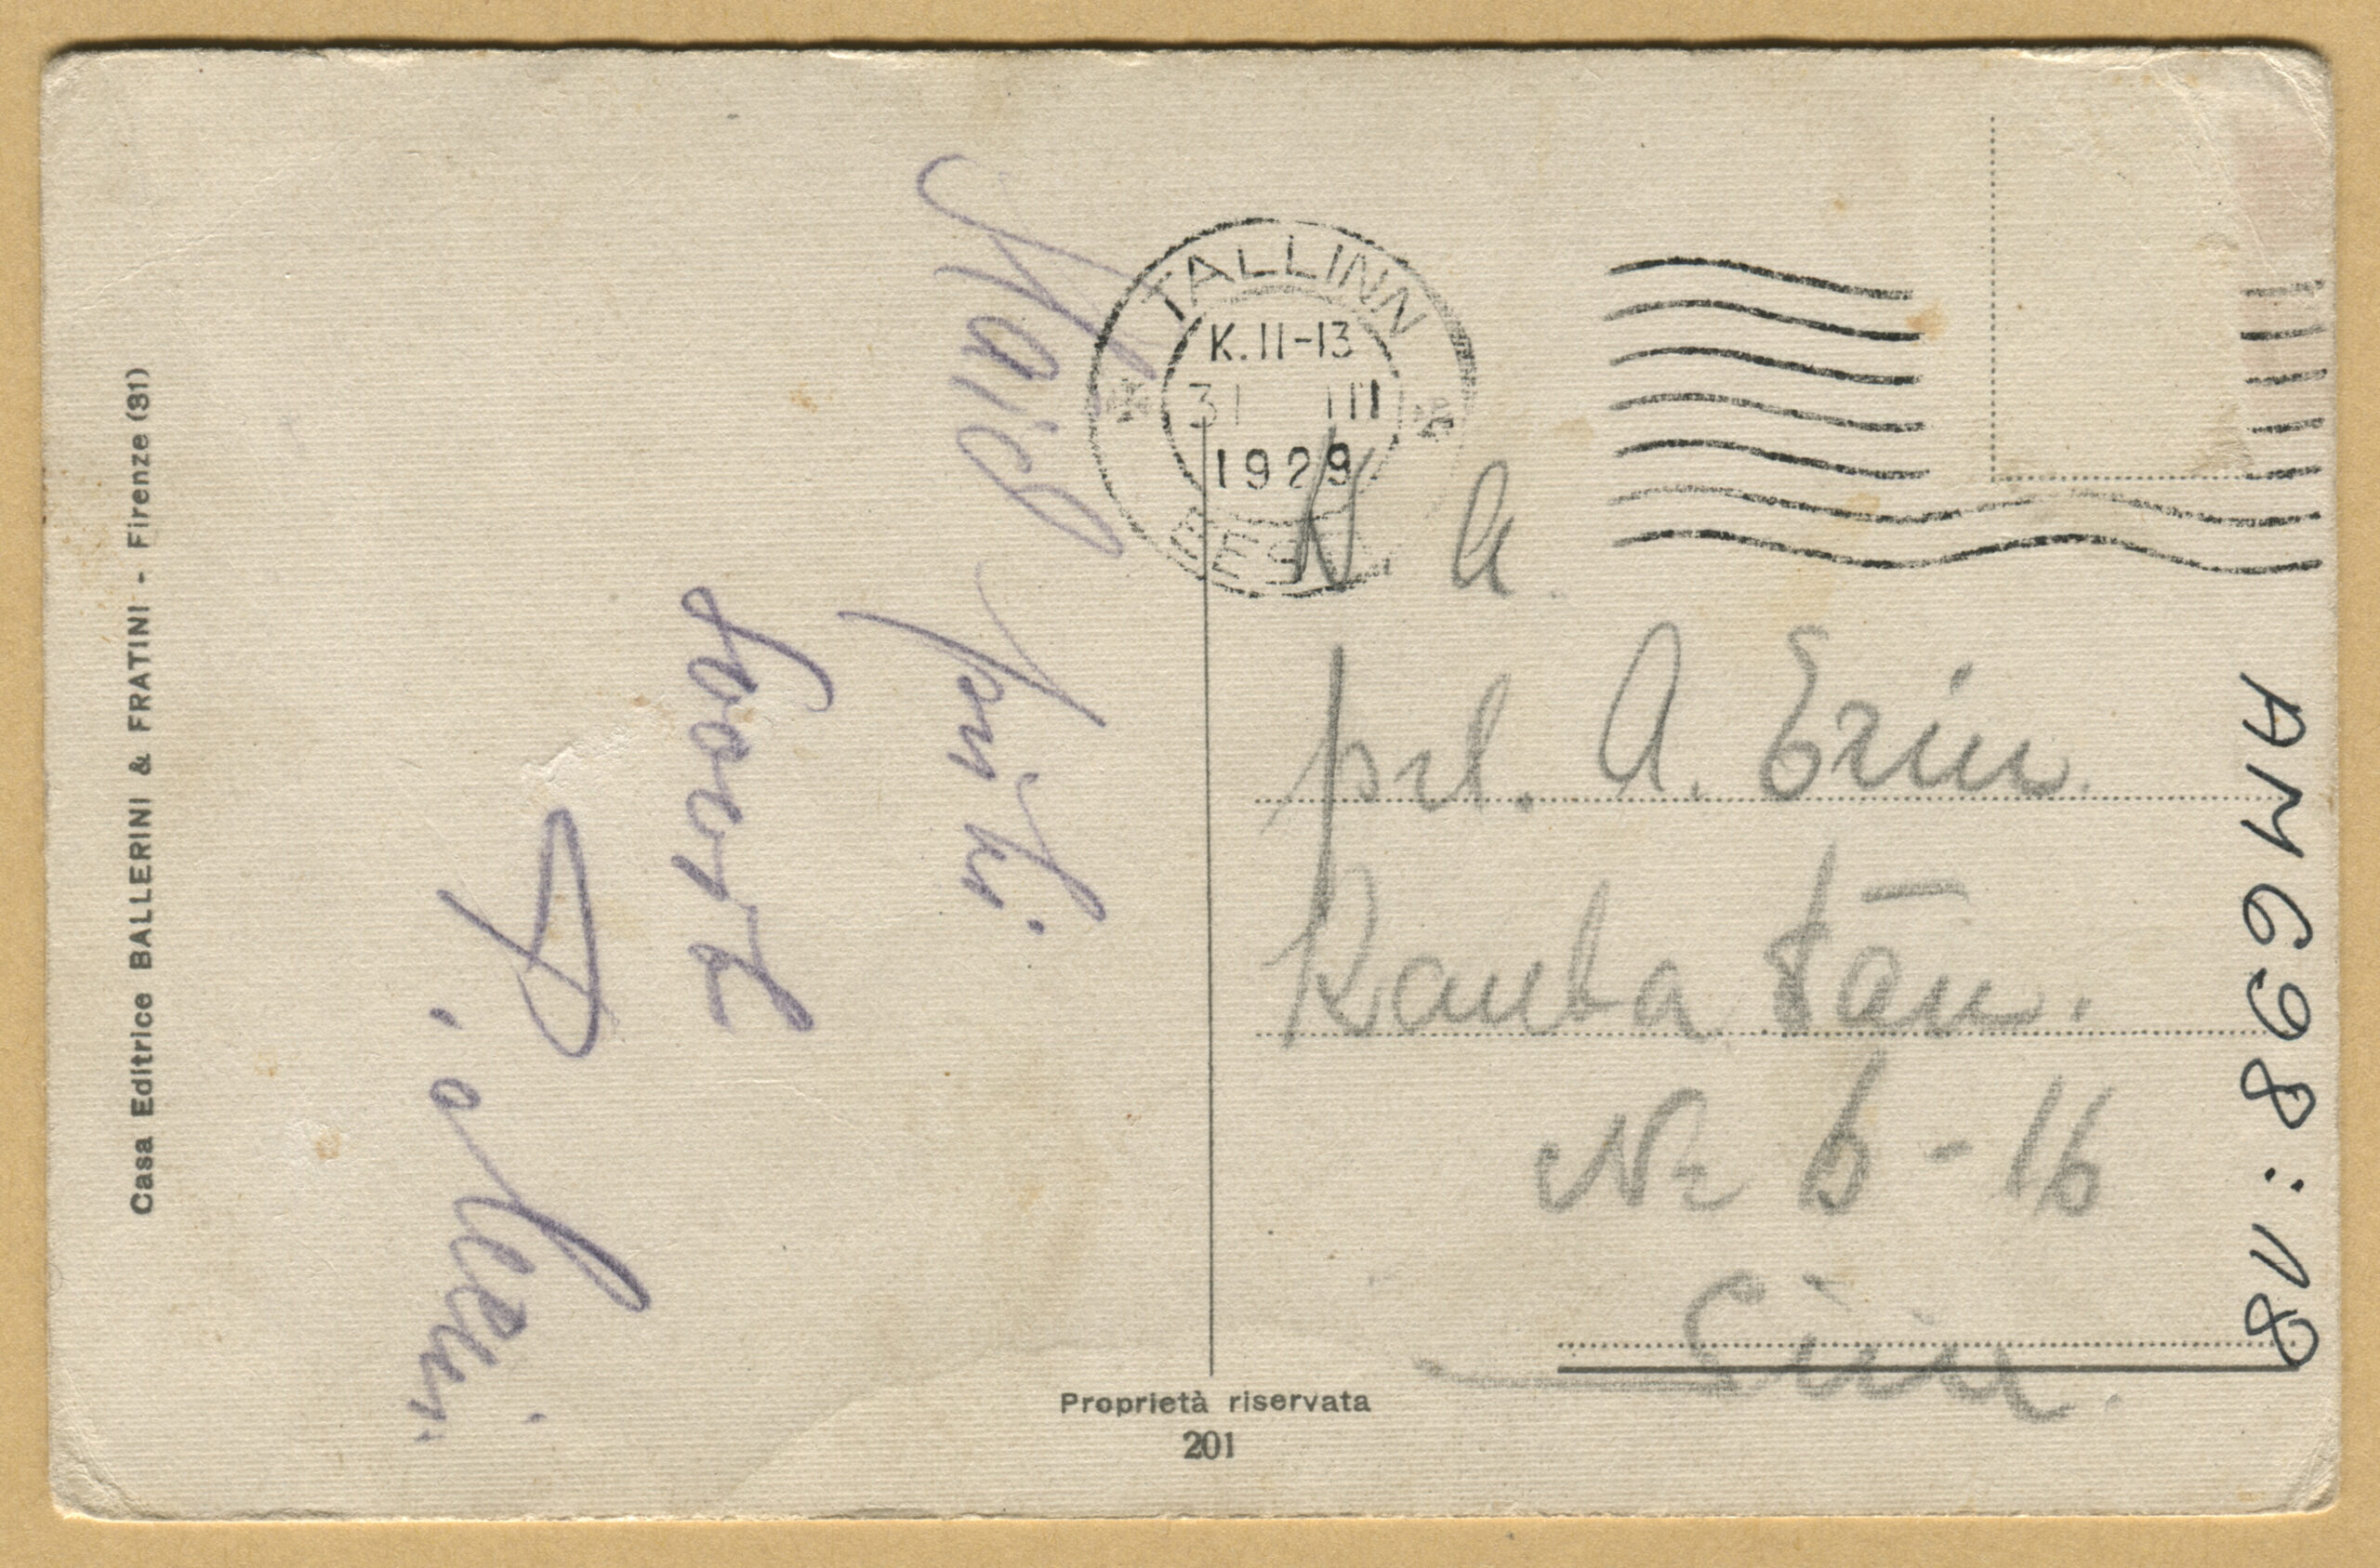 Casa Editrice BALLERINI & FRATINI - Firenze (31)
Häid pühi
soovib
TALLINN
K. 11-13
31 III
1929
EESTI
N. A.
prl. A. Erin.
Rauba tän.
№ 6-16
Siin.
AM 698:18
Proprietà riservata
201